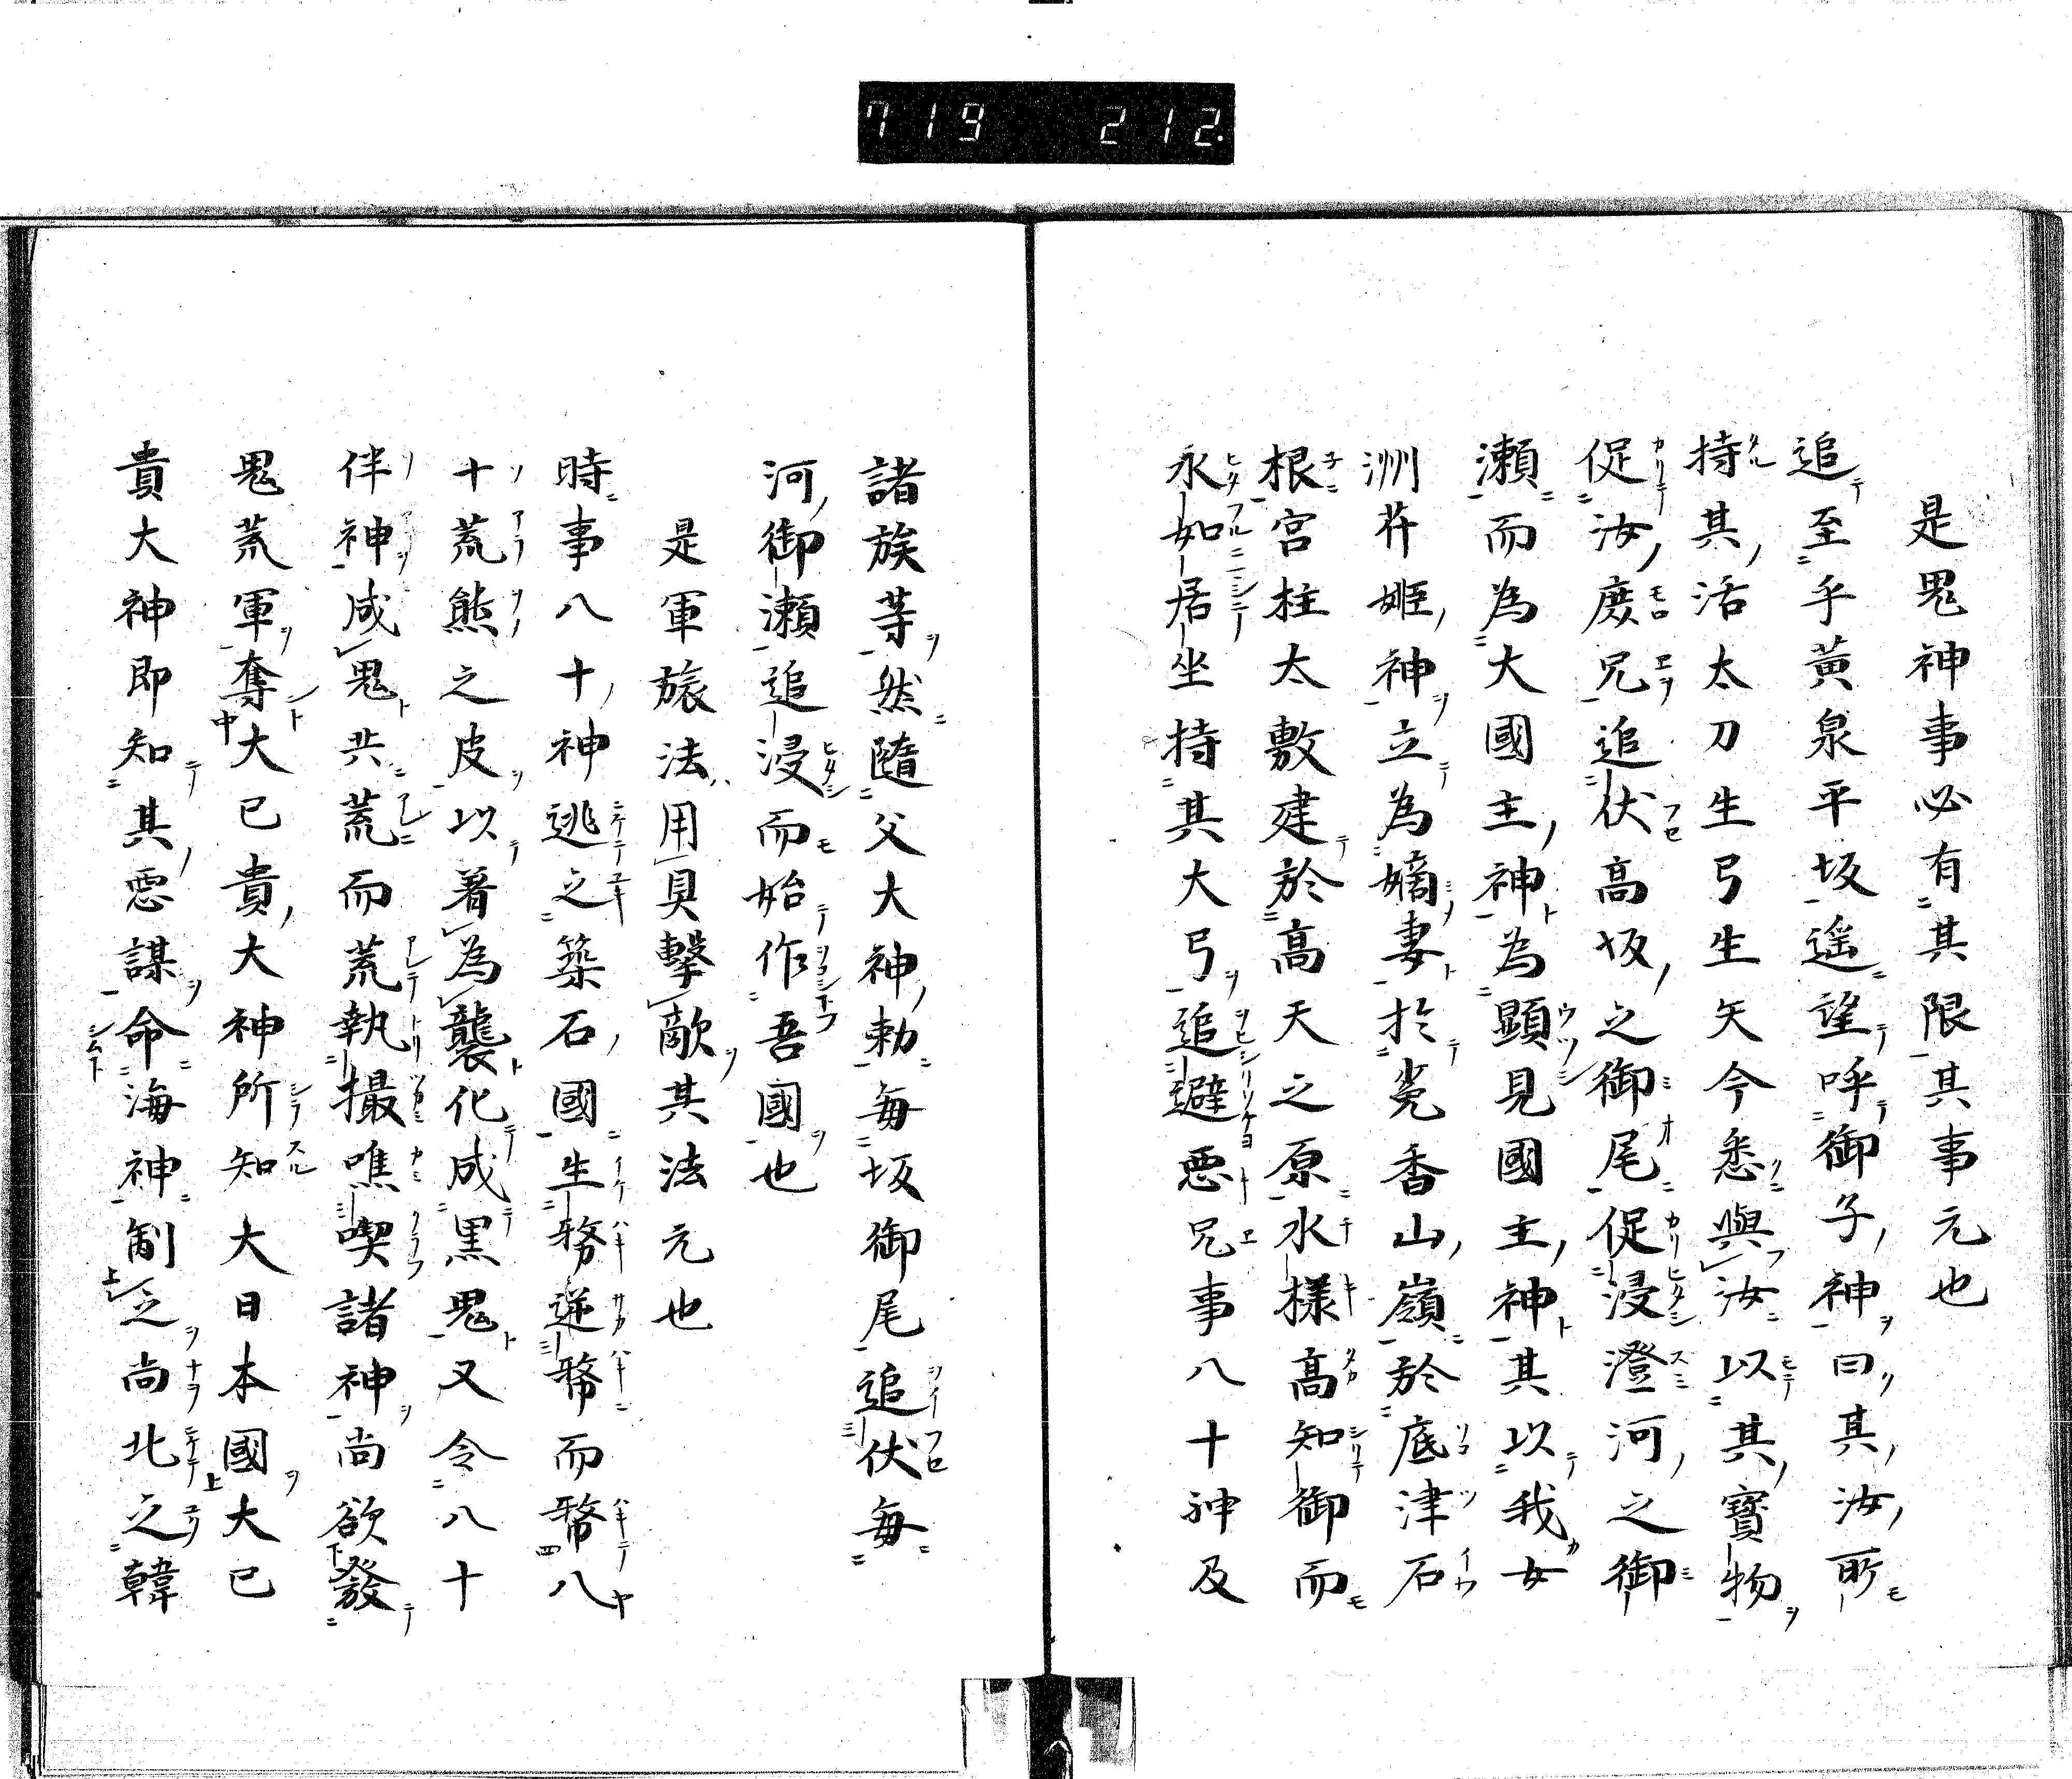 719 212.
是鬼神事必有其限其事元也
追至乎黄泉平坂遥望呼御子神曰其汝所
持其活太刀生弓生矢今悉與汝以其寳物
促汝庶兄追伏高坂之御尾促浸澄河之御
瀬而為大國主神為顕見國主神其以我女
洲井姫神立為嫡妻於嵬香山嶺於底津石
根宮柱太敷建於高天之原水様高知御而
永如居坐持其大弓追避悪兄事八十神及
諸族等然隨父大神勅毎坂御尾追伏毎
河御瀬追浸而始作吾國也
是軍旅法用具撃敵其法元也
時事八十神逃之築石國生務逆幣而幣八
十荒熊之皮以着為襲化成黒鬼又令八十
伴神咸鬼共荒而荒執撮噍喫諸神尚欲發
鬼荒軍奪大已貴大神所知大日本國大已
貴大神即知其悪謀命海神制之尚北之韓